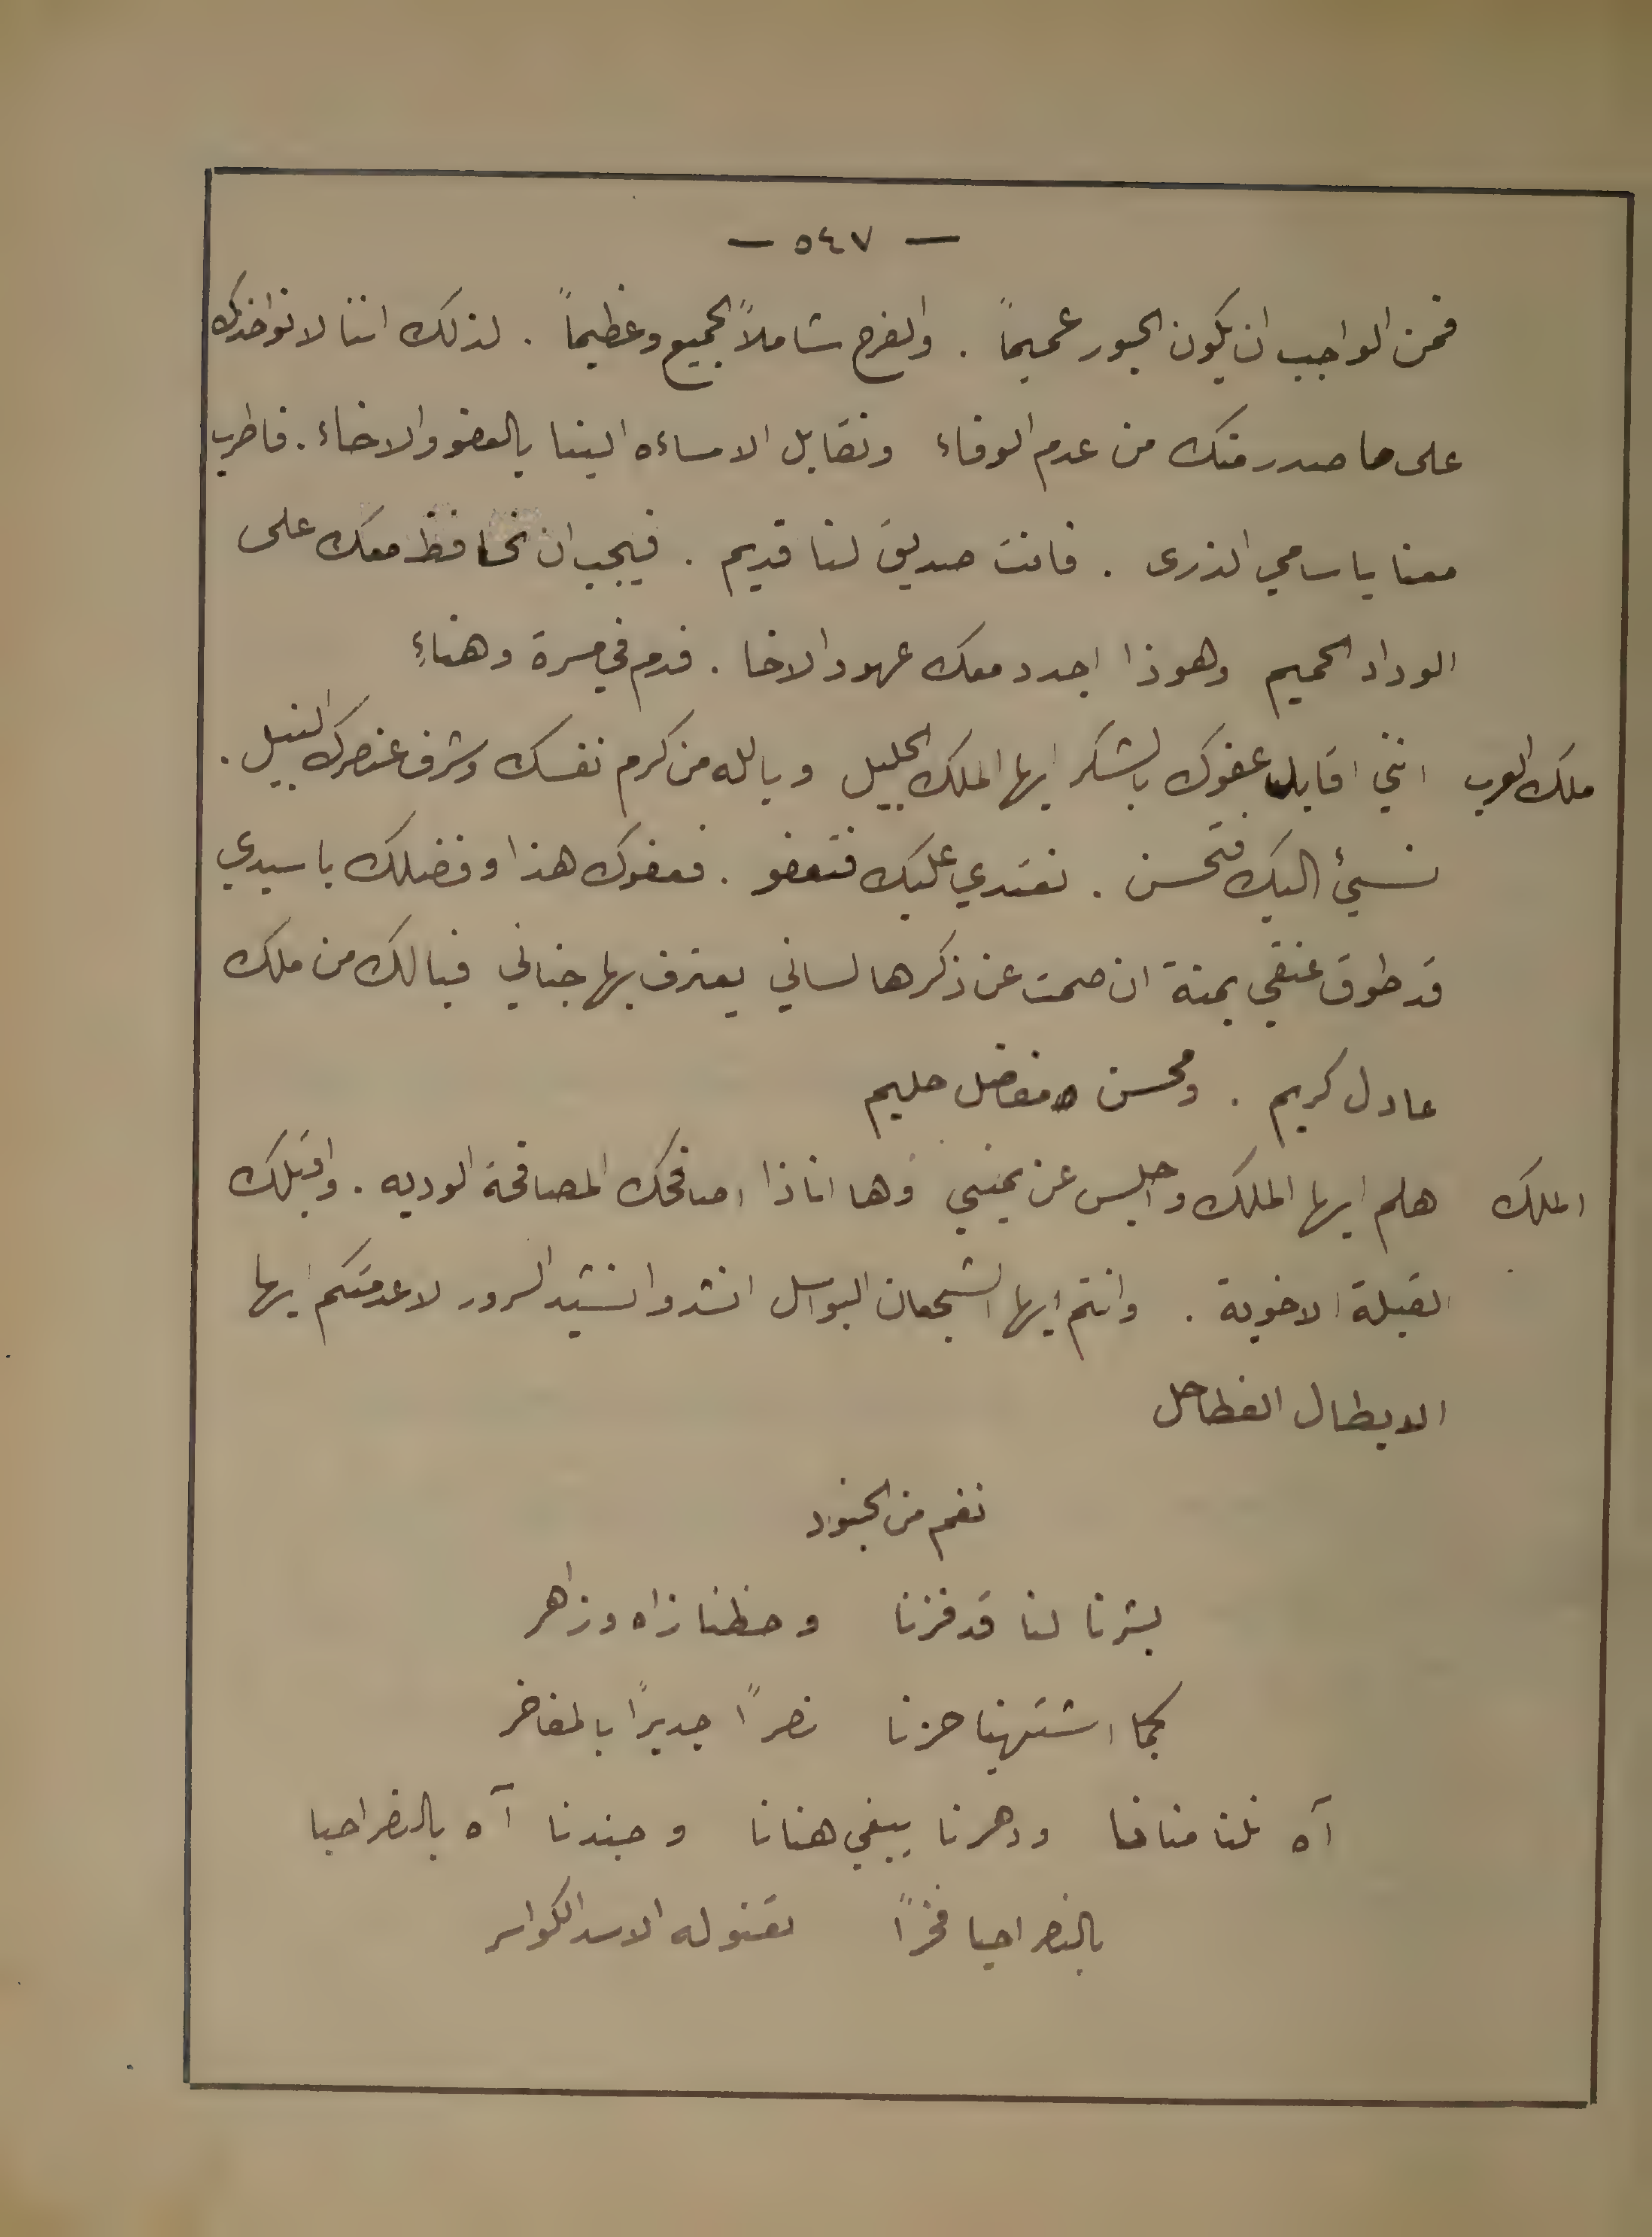 — ٥٤٧ —
فمن الواجب ان يكون الحبور عميماً . والفرح شاملاً الجميع وعظيماً . لذلك اننا لا نواخذك
على ما صدر منك من عدم الوفاء ونقابل الاساءه الينا بالعفو والاخاء . فاطرب
معنا يا سامي الذرى . فانت صديق لنا قديم . فيجب ان نحافظ معك على
الوداد الحميم وهوذا اجدد معك عهود الاخا . فدم في مسرة وهناءِ
ملك العرب انني اقابل عفوك بالشكر ايها الملك الجليل ويالله من كرم نفسك وشرف عنصرك النبيل .
نسيئ اليك فتحسن . نعتدي عليك فتعفو . فعفوك هذا وفضلك يا سيدي
قد طوق عنقي بمنة ان صمت عن ذكرها لساني يعترف بها جناني فيالك من ملك
عادل كريم . ومحسن مفاضل حليم
الملك هلم ايها الملك واجلس عن يميني وها اناذا اصافحك المصافحة الوديه . واقبلك
القبلة الاخوية . وانتم أيها الشجعان البواسل انشدوا نشيد السرور لا عدمتكم ايها
الابطال الفطاحل
نغم من الجنود
بشرنا لنا قد فزنا وحظنا زاه وزاهر
كما اشتهينا حزنا نصراً جديراً بالمفاخر
آه نلنا منانا ودهرنا يبغي هنانا وجندنا آه بالنصر احيا
بالنصر احيا فخراً تعنو له الاسد الكواسر